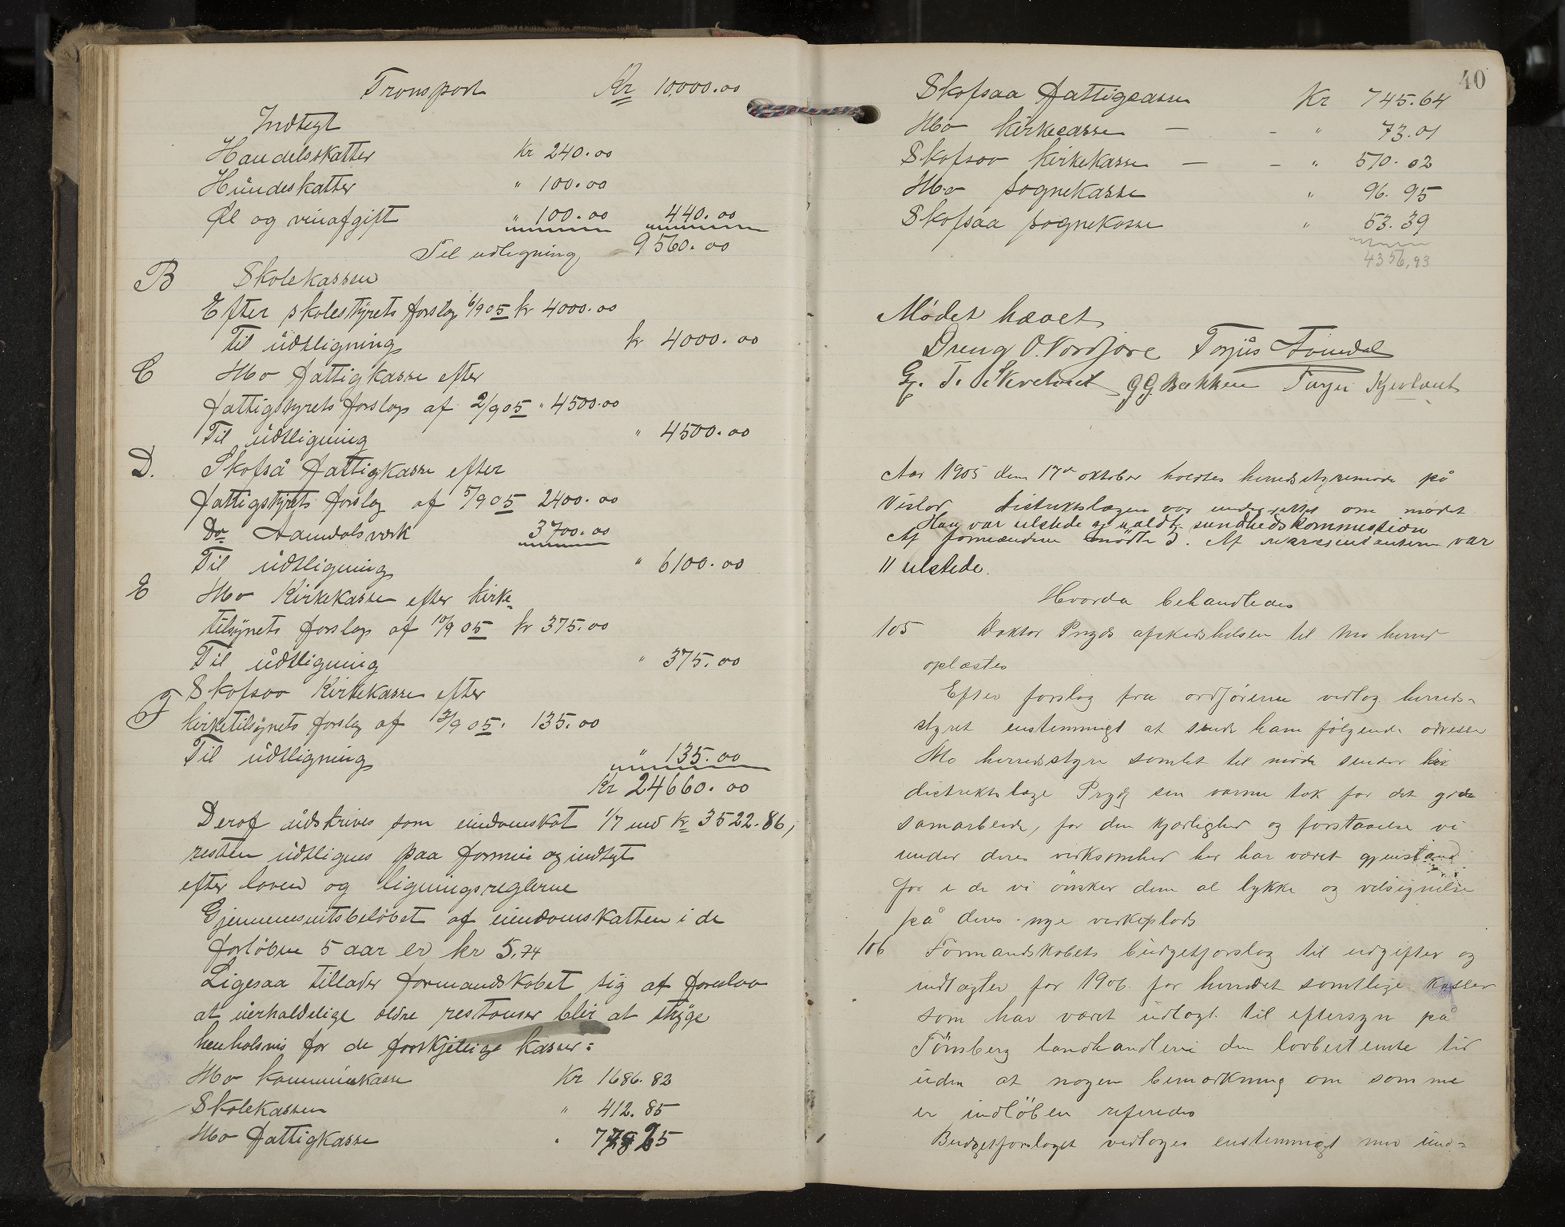 Transport Kr 10000.00
Indtegt
Handelsskatter Kr 240.00
Hundeskatter " 100.00
Øl og vinafgift " 100.00 440.00
Til udligning 9560.00
B Skolekassen
Efter skolestyrets forslag 6/9 05 kr 4000.00
Til udligning kr 4000.00
C Mo Fattigkasse efter
Fattigstyrets forslag af 2/9 05 " 4500.00
Til udligning " 4500.00
D. Skafså Fattigkasse efter
Fattigstyrets forslag af 5/9 05 2400.00
Do Aamdalsverk 3700.00
Til udligning " 6100.00
E Mo Kirkekasse efter Kirke-
tilsynets forslag af 10/9 05 kr 375.00
Til udligning " 375.00
F Skafsaa Kirkekasse efter
kirketilsynets forslag af 13/9 05. 135.00
Til udligning " 135.00
Kr 24660.00
Deraf udskrives som eiendomskat 1/7 med kr 3522.86,
resten udlignes paa formue og indtegt
efter loven og ligningsreglerne
Gjennemsnitsbeløbet af eiendomsskatten i de
forløbne 5 aar er kr 5,74
Ligesaa tillader formandskabet sig at foreslaa
at uerholdelige ældre restanser blir at stryge
henholsvis for de forskjellige kasser:
Mo kommunekasse Kr 1686.82
Skolekassen " 412.85
Mo Fattigkasse "
40
Skafsaa Fattigcasse Kr 745.64
Mo Kirkecasse — - " 73.01
Skafsaa Kirkekasse — - " 510.02
Mo sognekasse " 96.95
Skafsaa sognekasse " 53.39
4356,93
Mødet hævet
Dreng O. Nordjore Torjus Aamdal
G. T. Skretveit GGBakken Turger Kjevlaut
Aar 1905 den 17de oktober holdtes herredsstyremøde på
Vistad. Distriktslægen var underrettet om mødet
Han var tilstede og valdt. sundhedskommission
Af formændene mødte 3. Af repræsentanterne var
11 tilstede.
Hvorda behandledes
105 Doktor Prydz afskedshilsen til Mo herred
oplæstes
Efter forslag fra ordføreren vedtog herreds-
styret enstemmigt at sende ham følgende adresse
Mo herredsstyre samlet til møde sender hr
distriktslæge Prydz sin varme tak for det gode
samarbeide, for den kjærlighed og forstaaelse vi
under deres virksomhed her har været gjenstand
for i de vi ønsker dem al lykke og velsignelse
på deres nye virkeplads
106 Formandskabets budgetforslag til udgifter og
indtægter for 1906 for herredet samtlige kasser
som har været udlagt til eftersyn på
Tönsberg landhandleri den lovbestemte tid
uden at nogen bemærkning om samme
er indløben referedes
Budgetforslaget vedtages enstemmigt med und-